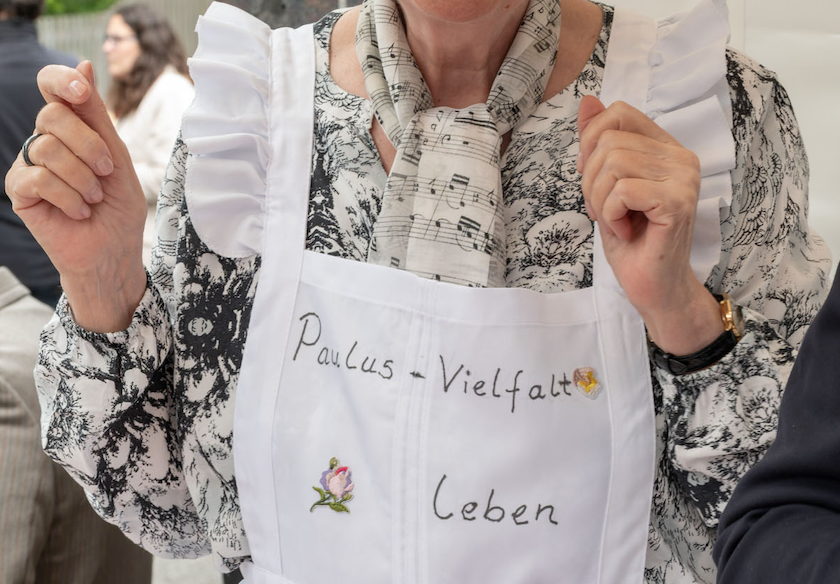 Paulus - Vielfalt
Leben